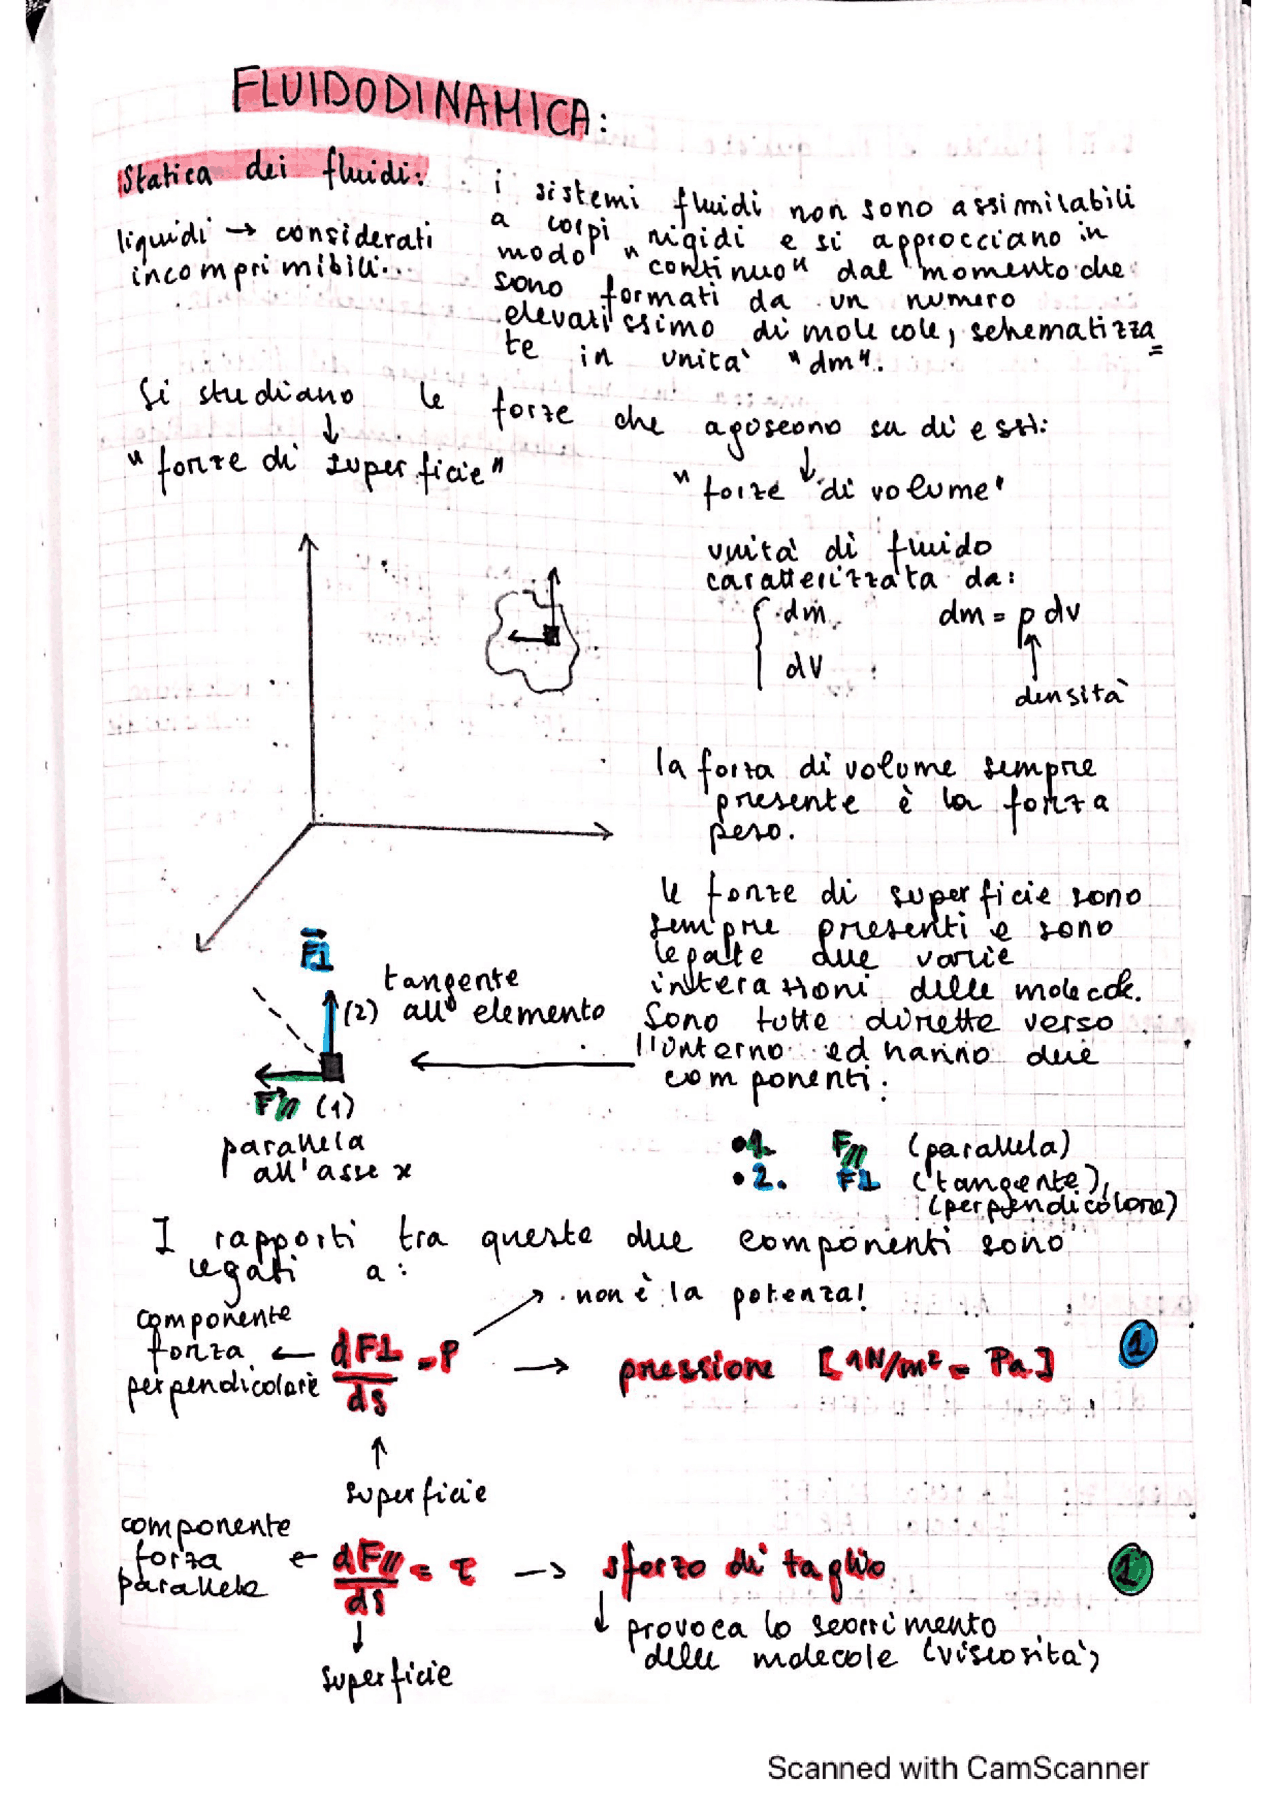 FLUIDODINAMICA:
Statica dei fluidi:
liquidi → considerati
incomprimibili...
i sistemi fluidi non sono assimilabili
a corpi rigidi e si approcciano in
modo "continuo" dal momento che
sono formati da un numero
elevatissimo di molecole, schematizza
te in unità "dm".
Si studiano le forze che agoscono su di essi:
↓
"forze di superficie"
↓
"forze di volume"
unità di fluido
caratterizzata da:
dm
dV
dm = ρ dv
↑
densità
la forza di volume sempre
presente è la forza
peso.
le forze di superficie sono
sempre presenti e sono
legate due varie
interazioni delle molecole.
Sono tutte dirette verso
l'interno ed hanno due
componenti:
F⊥
(2)
tangente
all' elemento
F// (1)
parallela
all'asse x
•1. F// (parallela)
•2. F⊥ (tangente),
(perpendicolare)
I rapporti tra queste due componenti sono
legati a:
non è la potenza!
componente
forza
perpendicolare
← dF⊥/ds = P → pressione [1N/m² = Pa] 1
↑
superficie
componente
forza
parallela
← dF///ds = τ → sforzo di taglio 1
↓
superficie
↓ provoca lo scorrimento
delle molecole (viscosità)
Scanned with CamScanner